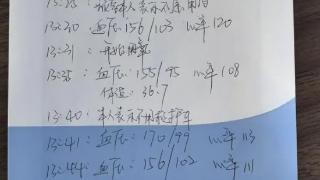 本人表示不
13:30 血压:156/103 心率120
13:31 :开始
13:35 :血压:155/95 心率108
体温:36.7
13:40:本人表示不用救护车
13:41:血压:170/99 心率113
13:44:血压:156/102 心率111